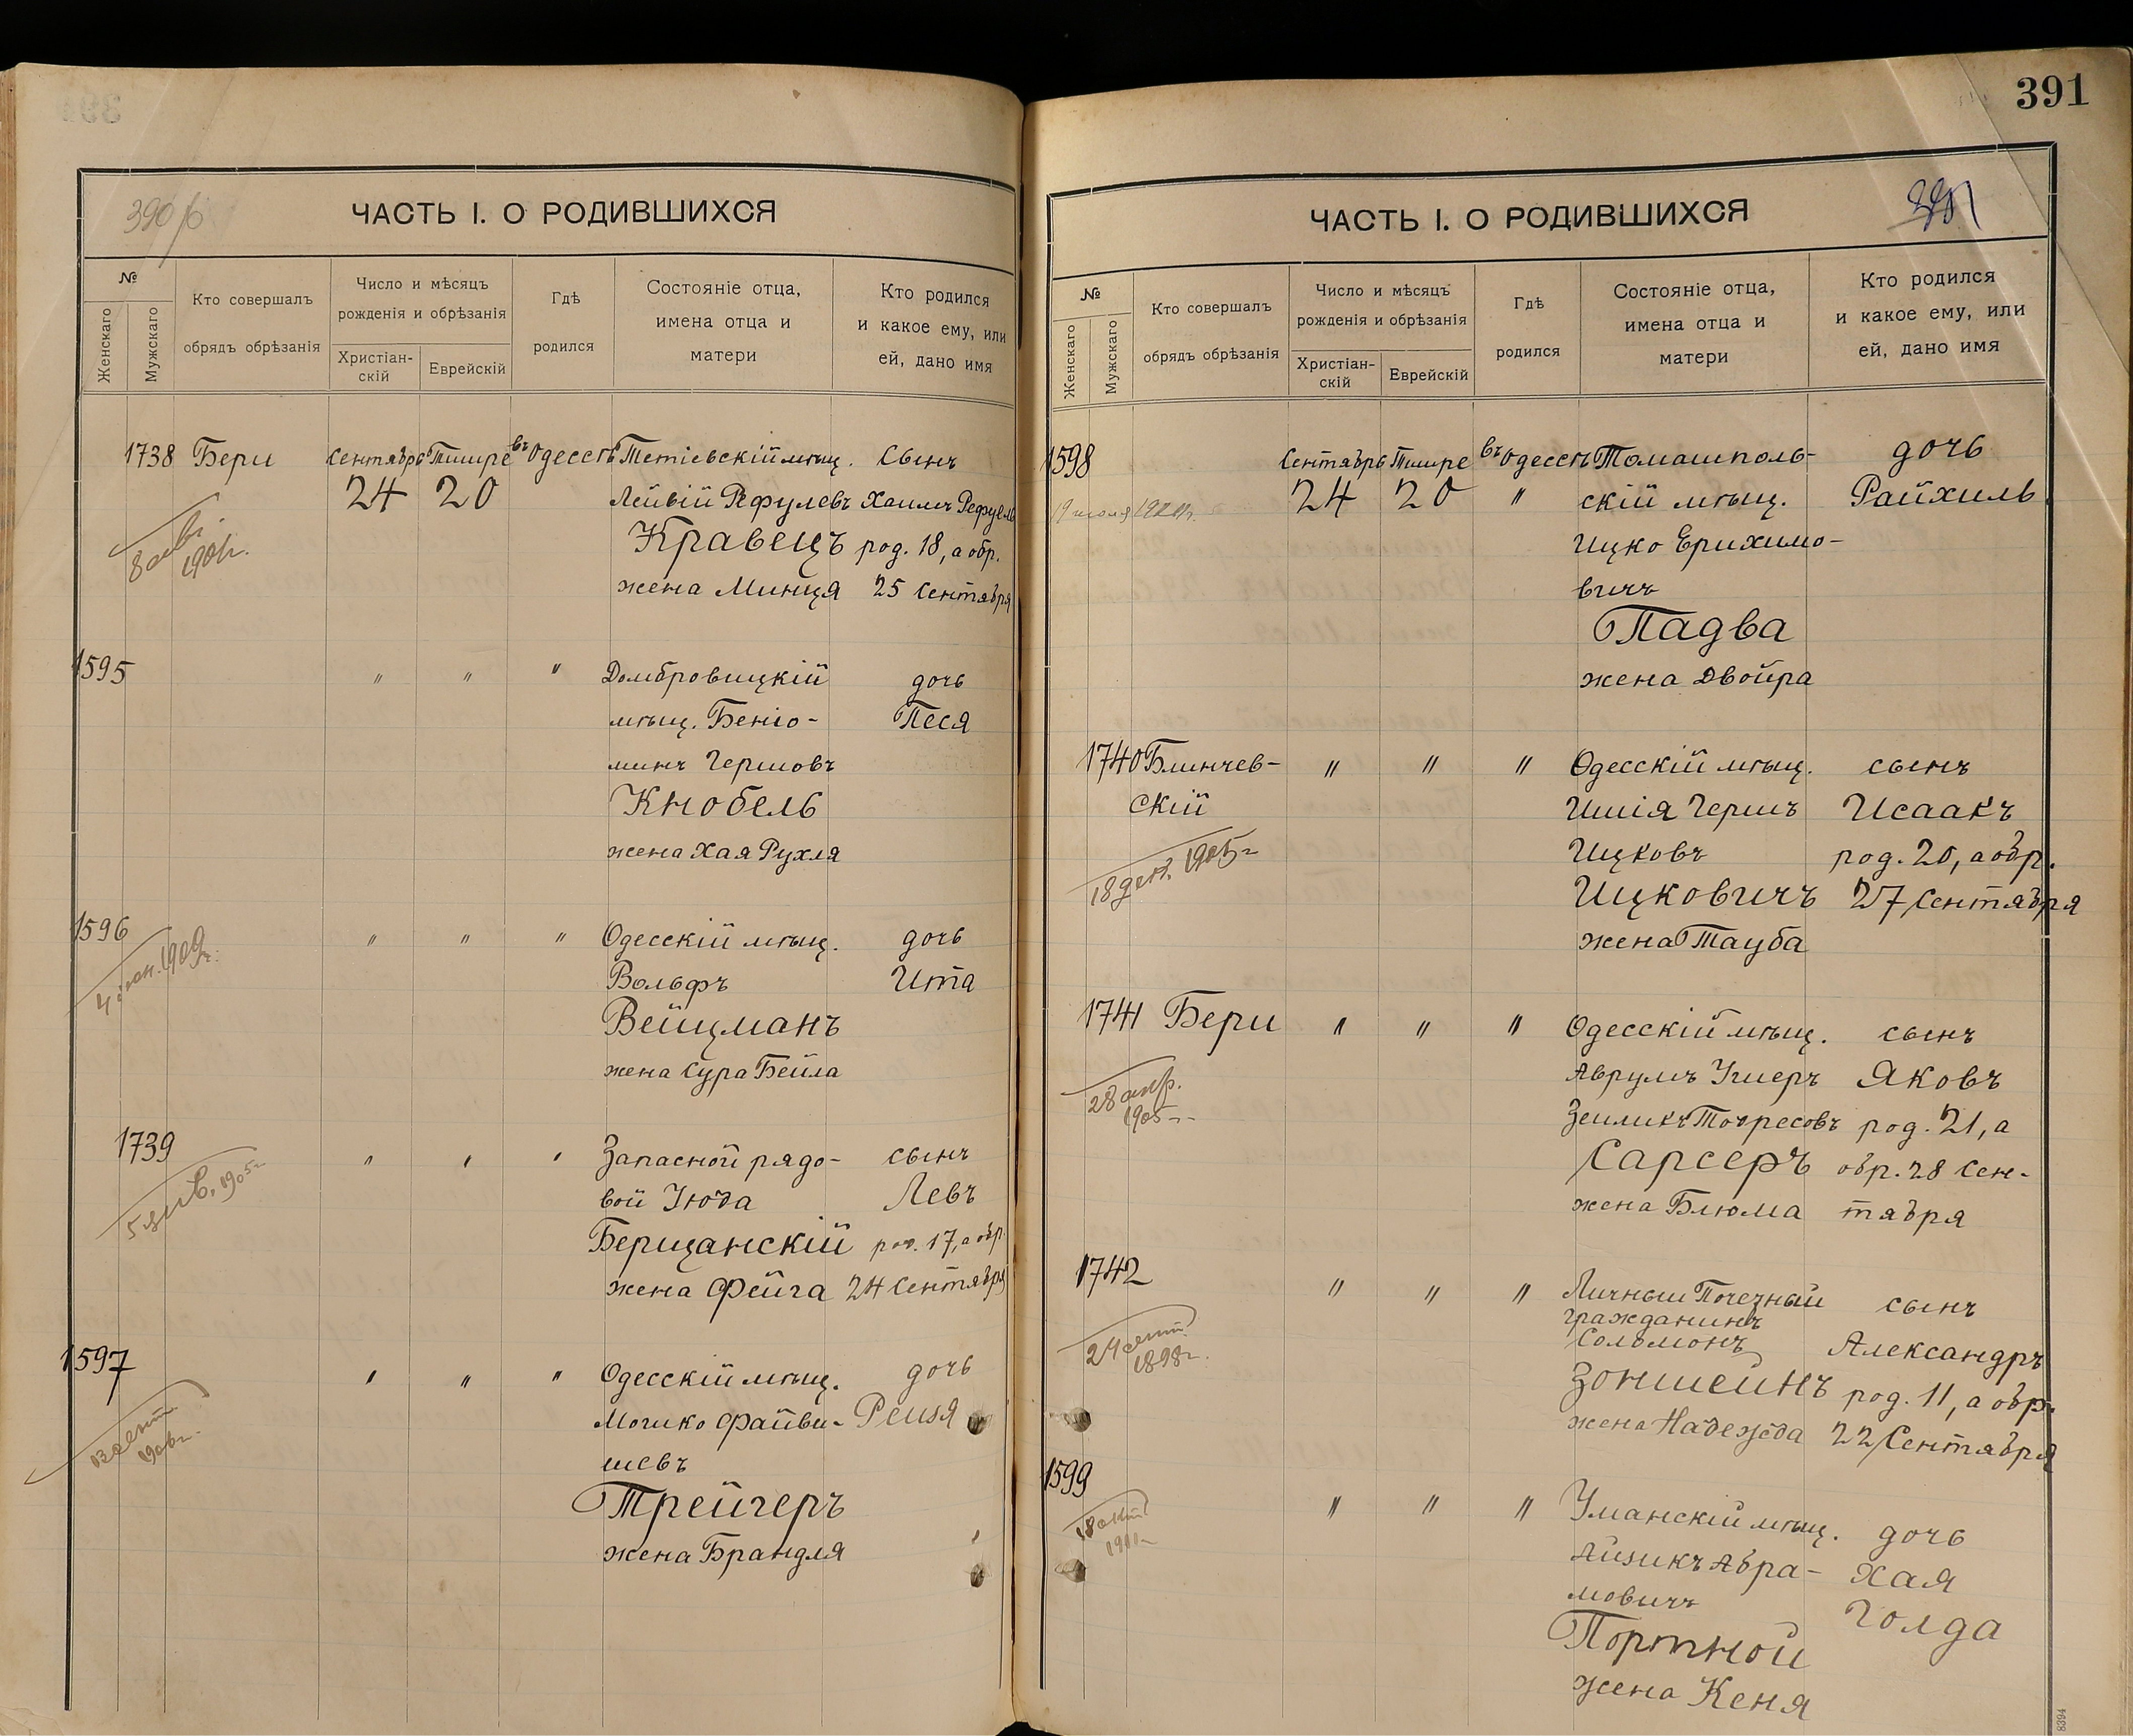 390/б
ЧАСТЬ I. О РОДИВШИХСЯ
№
Женскаго
Мужскаго
Кто совершалъ
обрядъ обрѣзанія
Число и мѣсяцъ
рожденія и обрѣзанія
Христіан-
скій
Еврейскій
Гдѣ
родился
Состояніе отца,
имена отца и
матери
Кто родился
и какое ему, или
ей, дано имя
1738 Бери Сентября Тишре въ Одессѣ Тетіевскій мѣщ. сынъ
24 20 Лейвій Рефулевъ Хаимъ Рефуель
Кравецъ род. 18, а обр.
жена Минця 25 Сентября
1595 " " " Домбровицкій дочь
мѣщ. Беніо- Песя
минъ Гершовъ
Кнобель
жена Хая Рухля
1596 " " " Одесскій мѣщ. дочь
1909г. Вольфъ Ита
Вейцманъ
жена Сура Бейла
1739 " " " Запасной рядо- сынъ
вой Іюда Левъ
Берщанскій род. 17, а обр.
жена Фейга 24 Сентября
1597 " " " Одесскій мѣщ. дочь
Мошко Файви- Рейзя
шевъ
Трейгеръ
жена Брандля
391
ЧАСТЬ I. О РОДИВШИХСЯ
№
Женскаго
Мужскаго
Кто совершалъ
обрядъ обрѣзанія
Число и мѣсяцъ
рожденія и обрѣзанія
Христіан-
скій
Еврейскій
Гдѣ
родился
Состояніе отца,
имена отца и
матери
Кто родился
и какое ему, или
ей, дано имя
1598 Сентябрь Тишре въ Одессѣ Томашполь- дочь
24 20 " скій мѣщ. Райхиль
Ицко Ерихимо-
вичъ
Падва
жена Двойра
1740 Блинчев- " " " Одесскій мѣщ. сынъ
скій Шшія Гершъ Исаакъ
18 дек. 1905г Ицковъ род. 20, а обр.
Ицковичъ 27 Сентября
жена Тауба
1741 Бери " " " Одесскій мѣщ. сынъ
28 апр. Аврумъ Ушеръ Яковъ
1905 г. Зейликъ Тодресовъ род. 21, а
Сарсеръ обр. 28 Сен-
жена Блюма тября
1742 " " " Личный Почетный сынъ
гражданинъ
Соломонъ Александръ
1898г. Зонштейнъ род. 11, а обр.
жена Надежда 22 Сентября
1599 " " " Уманскій мѣщ. дочь
Айзикъ Абра- Хая
мовичъ Голда
Портной
жена Кеня
8394